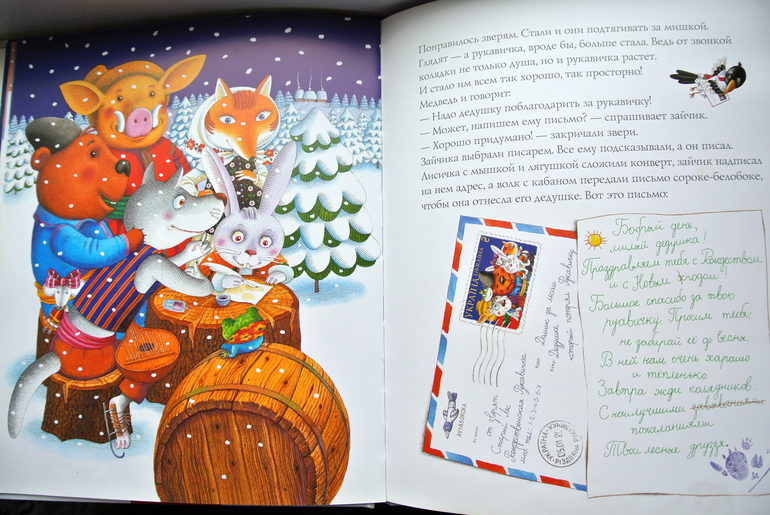 Понравилось зверям. Стали и они подтягивать за мишкой.
Глядят — а рукавичка, вроде бы, больше стала. Ведь от звонкой
колядки не только душа, но и рукавичка растет.
И стало им всем так хорошо, так просторно!
Медведь и говорит:
— Надо дедушку поблагодарить за рукавичку!
— Может, напишем ему письмо? — спрашивает зайчик.
— Хорошо придумано! — закричали звери.
Зайчика выбрали писарем. Все ему подсказывали, а он писал.
Лисичка с мышкой и лягушкой сложили конверт, зайчик надписал
на нем адрес, а волк с кабаном передали письмо сороке-белобоке,
чтобы она отнесла его дедушке. Вот это письмо:
УКРАЇНА
от зверят
Старый лес
Рождественская Рукавичка
Домик за лесом
Дедушка,
который потерял Рукавичку
05.01.2
Добрый день,
милый дедушка!
Праздравляем тебя с Рождеством
и с Новым годом!
Большое спасибо за твою
руавичку. Просим тебя:
не забирай её до весны.
В ней нам очень харашо
и тепленько.
Завтра жди колядников.
С наилучшими
пожеланиями
Твои лесные друззя.